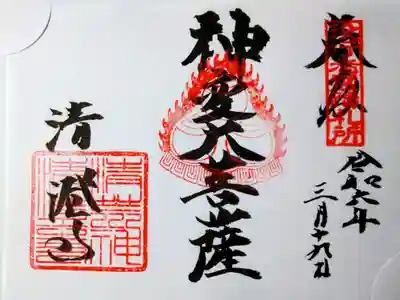 奉拝
令和六年
三月十九日
神変大菩薩
清荒神
清澄寺